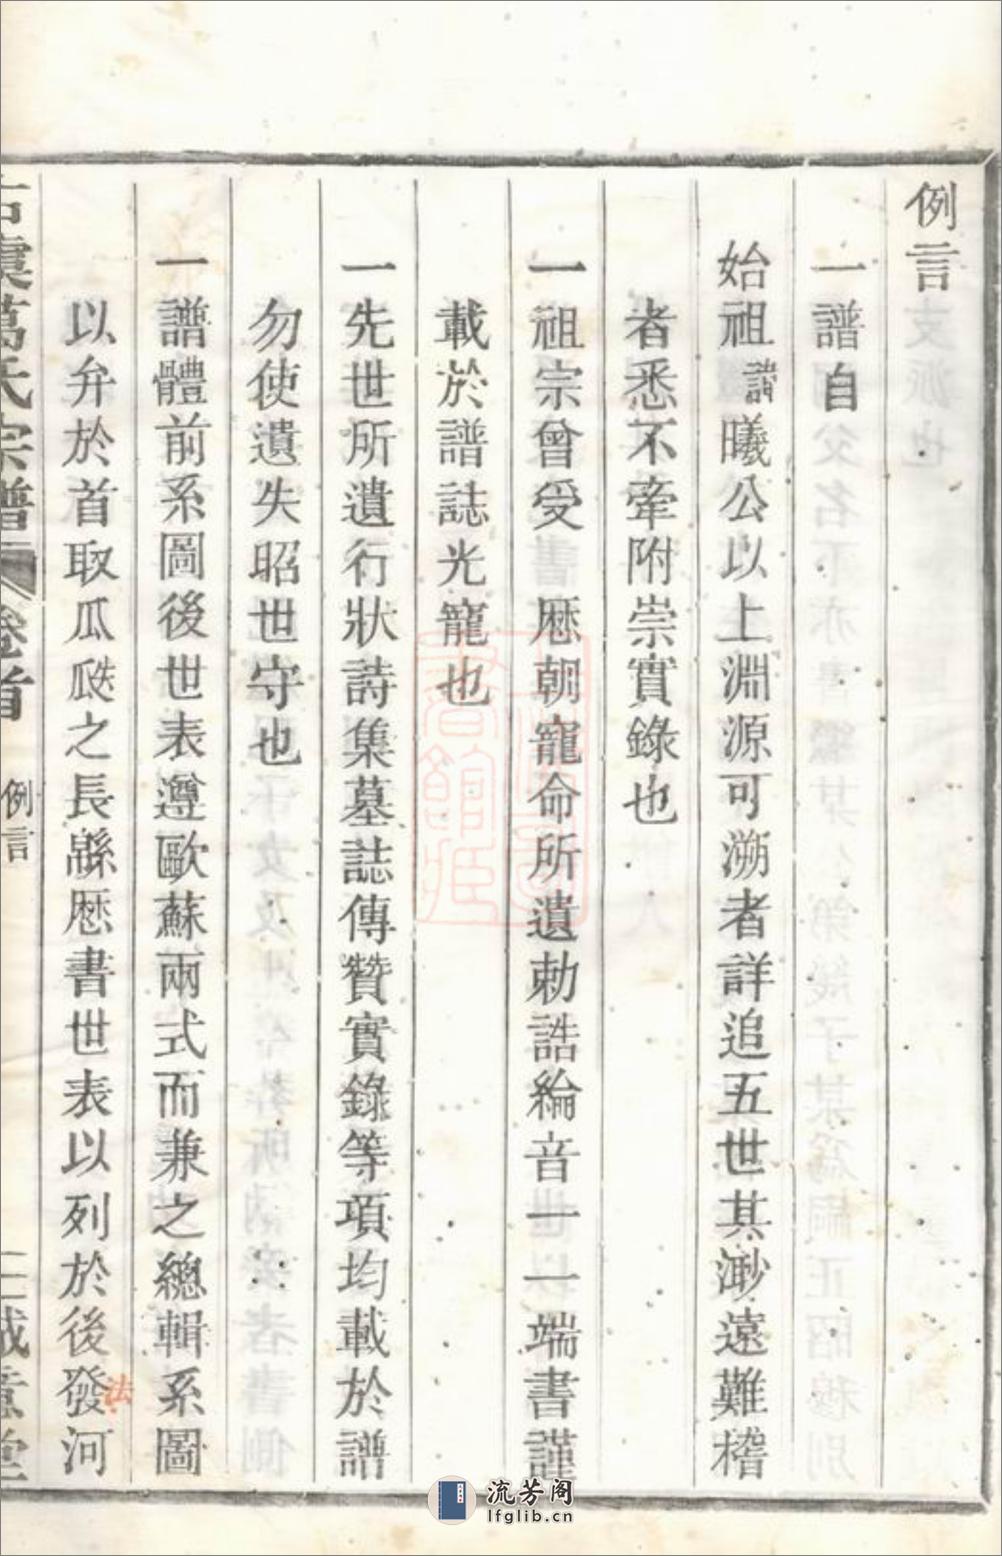 例言
一譜自
始祖諱曦公以上淵源可溯者詳追五世其渺遠難稽
者悉不牽附崇實錄也
一祖宗曾受　歷朝寵命所遺勅誥綸音一一端書謹
載於譜誌光寵也
一先世所遺行狀詩集墓誌傳贊實錄等項均載於譜
勿使遺失昭世守也
一譜體前系圖後世表遵歐蘇兩式而兼之總輯系圖
以弁於首取瓜瓞之長緜歷書世表以列於後發河
法
古虞萬氏宗譜 卷首 例言 誠意堂
流芳阁
lfglib.cn